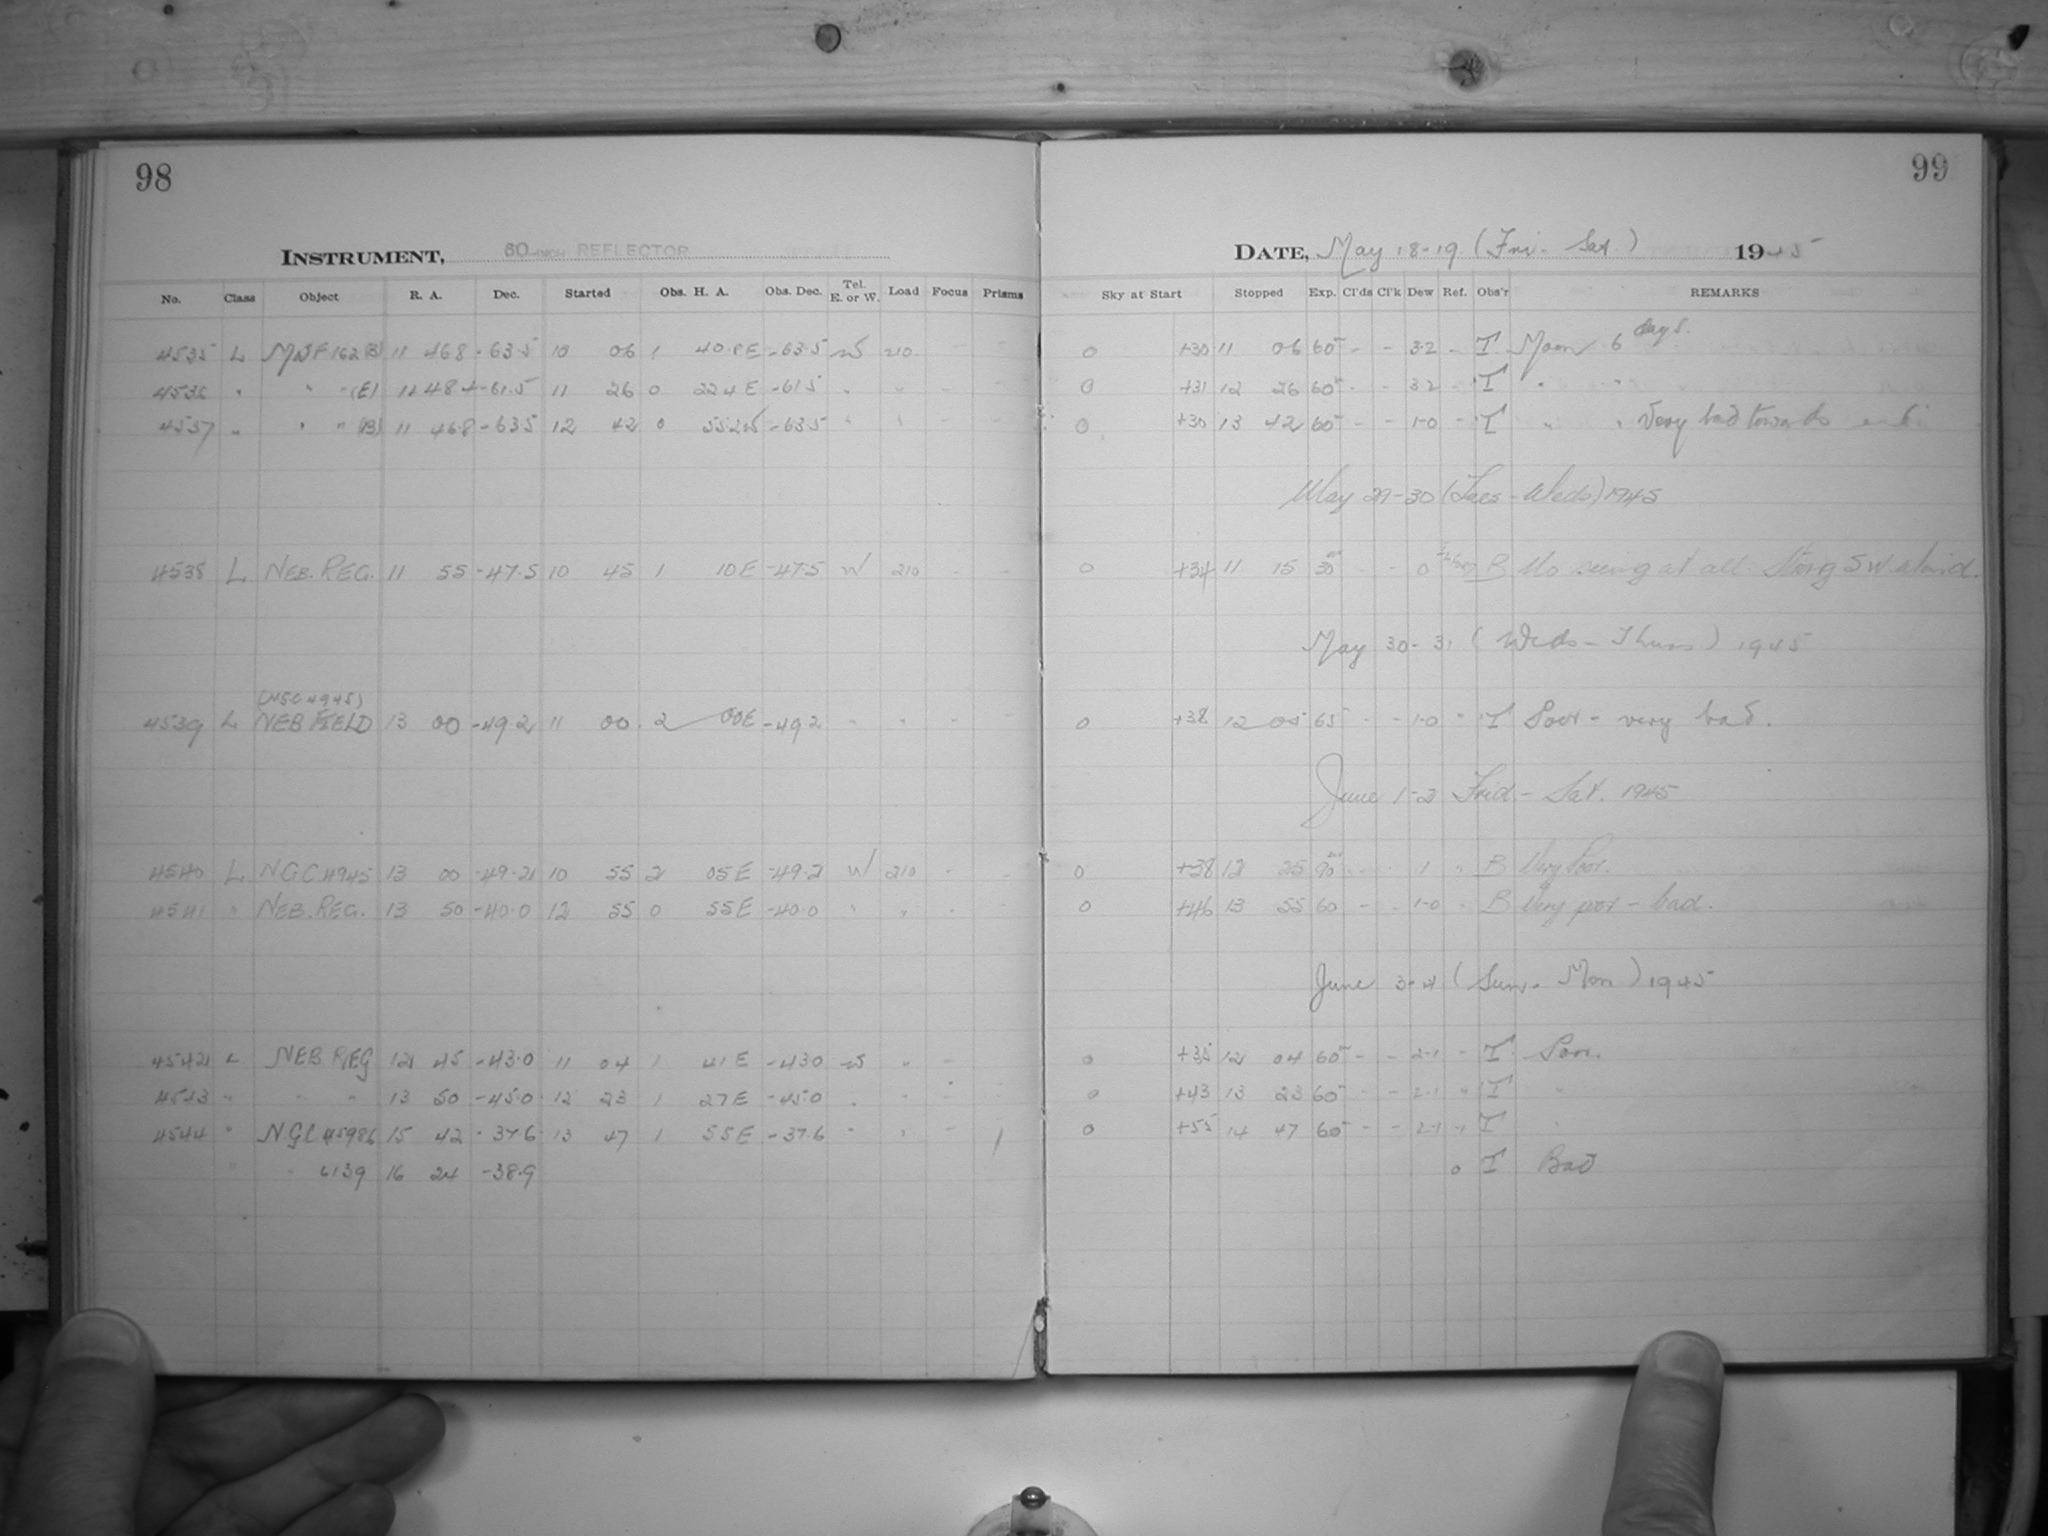 98
INSTRUMENT, 60-INCH REFLECTOR
No. Class Object R. A. Dec. Started Obs. H. A. Obs. Dec. Tel. E. or W. Load Focus Prisms
4535 L MWF 162 (B) 11 46.8 -63.5 10 06 1 40.8E -63.5 W 210 - -
4536 " " " (E) 11 48.4 -61.5 11 26 0 22.4E -61.5 " " - -
4537 " " " (B) 11 46.8 -63.5 12 42 0 55.2W -63.5 " " - -
4538 L NEB. REG. 11 55 -47.5 10 45 1 10E -47.5 W 210 - -
(NGC 4945)
4539 L NEB FIELD 13 00 -49.2 11 00 2 00E -49.2 " " - -
4540 L NGC 4945 13 00 -49.2 10 55 2 05E -49.2 W 210 - -
4541 " NEB. REG. 13 50 -40.0 12 55 0 55E -40.0 " " - -
4542 L NEB REG 12 45 -43.0 11 04 1 41E -43.0 W " -
4543 " " " 13 50 -45.0 12 23 1 27E -45.0 " " - -
4544 " NGC 5986 15 42 -37.6 13 47 1 55E -37.6 " " -
" " 6139 16 24 -38.9
99
DATE, May 18-19 (Fri - Sat.) 1945
Sky at Start Stopped Exp. Cl'ds Cl'k Dew Ref. Obs'r REMARKS
0 +30 11 06 60 - - 3.2 - T Moon 6 days.
0 +31 12 26 60 - - 3.2 - T " "
0 +30 13 42 60 - - 1.0 - T " " Very bad towards end
May 29-30 (Tues - Weds) 1945
0 +34 11 15 30 - - 0 B No seeing at all. Strong S W wind.
May 30-31 (Weds - Thurs) 1945
0 +38 12 05 65 - - 1.0 - T Poor - very bad.
June 1-2 Frid - Sat. 1945
0 +38 12 25 90 - - 1 " B Very Poor.
0 +46 13 55 60 - - 1.0 " B Very poor - bad.
June 3-4 (Sun - Mon) 1945
0 +35 12 04 60 - - 2.1 - T Poor.
0 +43 13 23 60 - - 2.1 " T "
0 +55 14 47 60 - - 2.1 " T "
0 T Bad